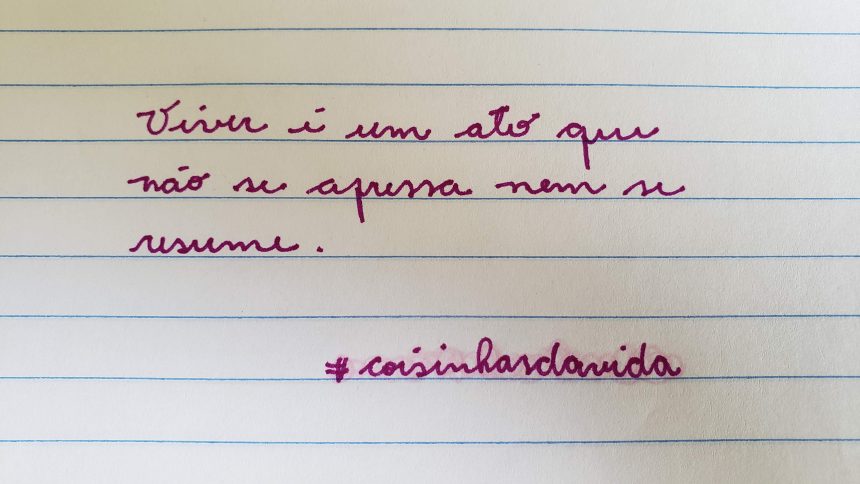 Viver é um ato que
não se apressa nem se
resume.
#coisinhasdavida